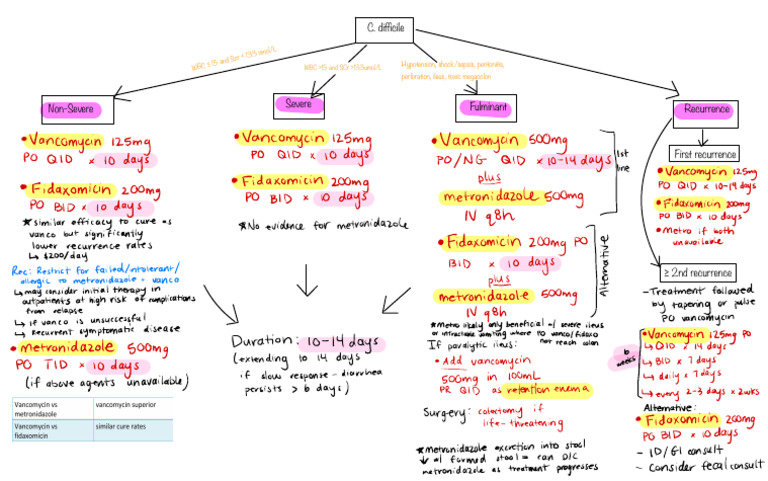 C. difficile
WBC ≤ 15 and Scr < 133.5 umol/L
WBC >15 and SCr >133umol/L
Hypotension, shock/sepsis, peritonitis,
perforation, ileus, toxic megacolon
Non-Severe
• Vancomycin 125mg
PO QID × 10 days
• Fidaxomicin 200mg
PO BID × 10 days
* similar efficacy to cure as
vanco but significantly
lower recurrence rates
↳ $200/day
Rec: Restrict for failed/intolerant/
allergic to metronidazole + vanco
↳ may consider initial therapy in
outpatients at high risk of complications
from relapse
↳ if vanco is unsuccessful
↳ Recurrent symptomatic disease
• metronidazole 500mg
PO TID × 10 days
(if above agents unavailable)
Vancomycin vs metronidazole
vancomycin superior
Vancomycin vs fidaxomicin
similar cure rates
Severe
• Vancomycin 125mg
PO QID × 10 days
• Fidaxomicin 200mg
PO BID × 10 days
* No evidence for metronidazole
Duration: 10-14 days
(extending to 14 days
if slow response - diarrhea
persists > 6 days)
Fulminant
• Vancomycin 500mg
PO/NG QID × 10-14 days
plus
metronidazole 500mg
IV q8h
1st
line
• Fidaxomicin 200mg PO
BID × 10 days
plus
metronidazole 500mg
IV q8h
Alternative
* Metro likely only beneficial w/ severe ileus
or intractable vomiting where PO vanco/fidaxo
not reach colon
If paralytic ileus:
• Add vancomycin
500mg in 100mL
PR QID as retention enema
Surgery: colectomy if
life-threatening
* metronidazole excretion into stool
↓ w/ formed stool = can D/C
metronidazole as treatment progresses
Recurrence
First recurrence
• Vancomycin 125mg
PO QID × 10-14 days
• Fidaxomicin 200mg
PO BID × 10 days
• Metro if both
unavailable
≥ 2nd recurrence
- Treatment followed
by tapering or pulse
PO vancomycin
6
weeks
• Vancomycin 125mg PO
↳ QID × 14 days
↳ BID × 7 days
↳ daily × 7 days
↳ every 2-3 days × 2wks
Alternative:
• Fidaxomicin 200mg
PO BID × 10 days
- ID/GI consult
- Consider fecal consult